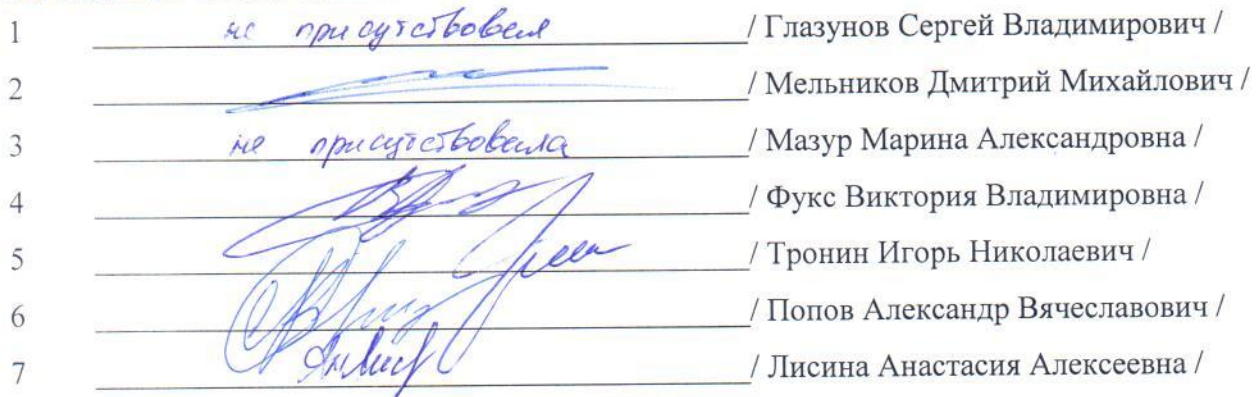 1 не присутствовал / Глазунов Сергей Владимирович /
2 / Мельников Дмитрий Михайлович /
3 не присутствовала / Мазур Марина Александровна /
4 / Фукс Виктория Владимировна /
5 / Тронин Игорь Николаевич /
6 / Попов Александр Вячеславович /
7 / Лисина Анастасия Алексеевна /